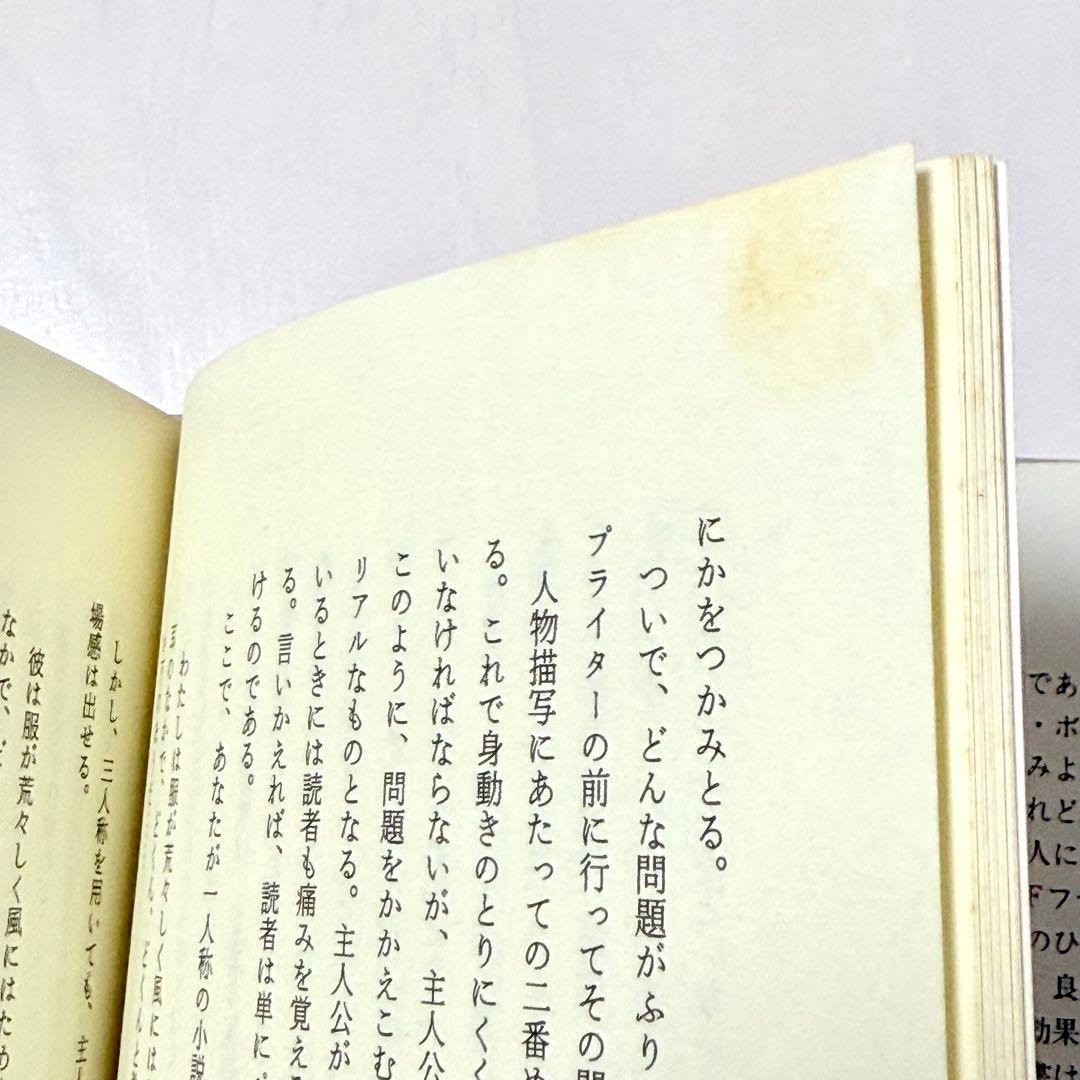 にかをつかみとる。
ついで、どんな問題がふり
プライターの前に行ってその問
人物描写にあたっての二番め
る。これで身動きのとりにくく
いなければならないが、主人公
このように、問題をかかえこむ
リアルなものとなる。主人公が
いるときには読者も痛みを覚え
る。言いかえれば、読者は単に
けるのである。
ここで、あなたが一人称の小説
わたしは服が荒々しく風には
しかし、三人称を用いても、主
場感は出せる。
彼は服が荒々しく風にはため
なかで、ど
であ
・ボ
みよ
れど
人に
Fフ
のひ
良
効果